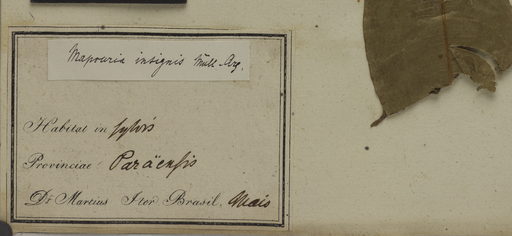 Mapouria insignis Müll. Arg.
Habitat in sylvis
Provinciae Paraënsis
Dr. Martius Iter Brasil. Maio